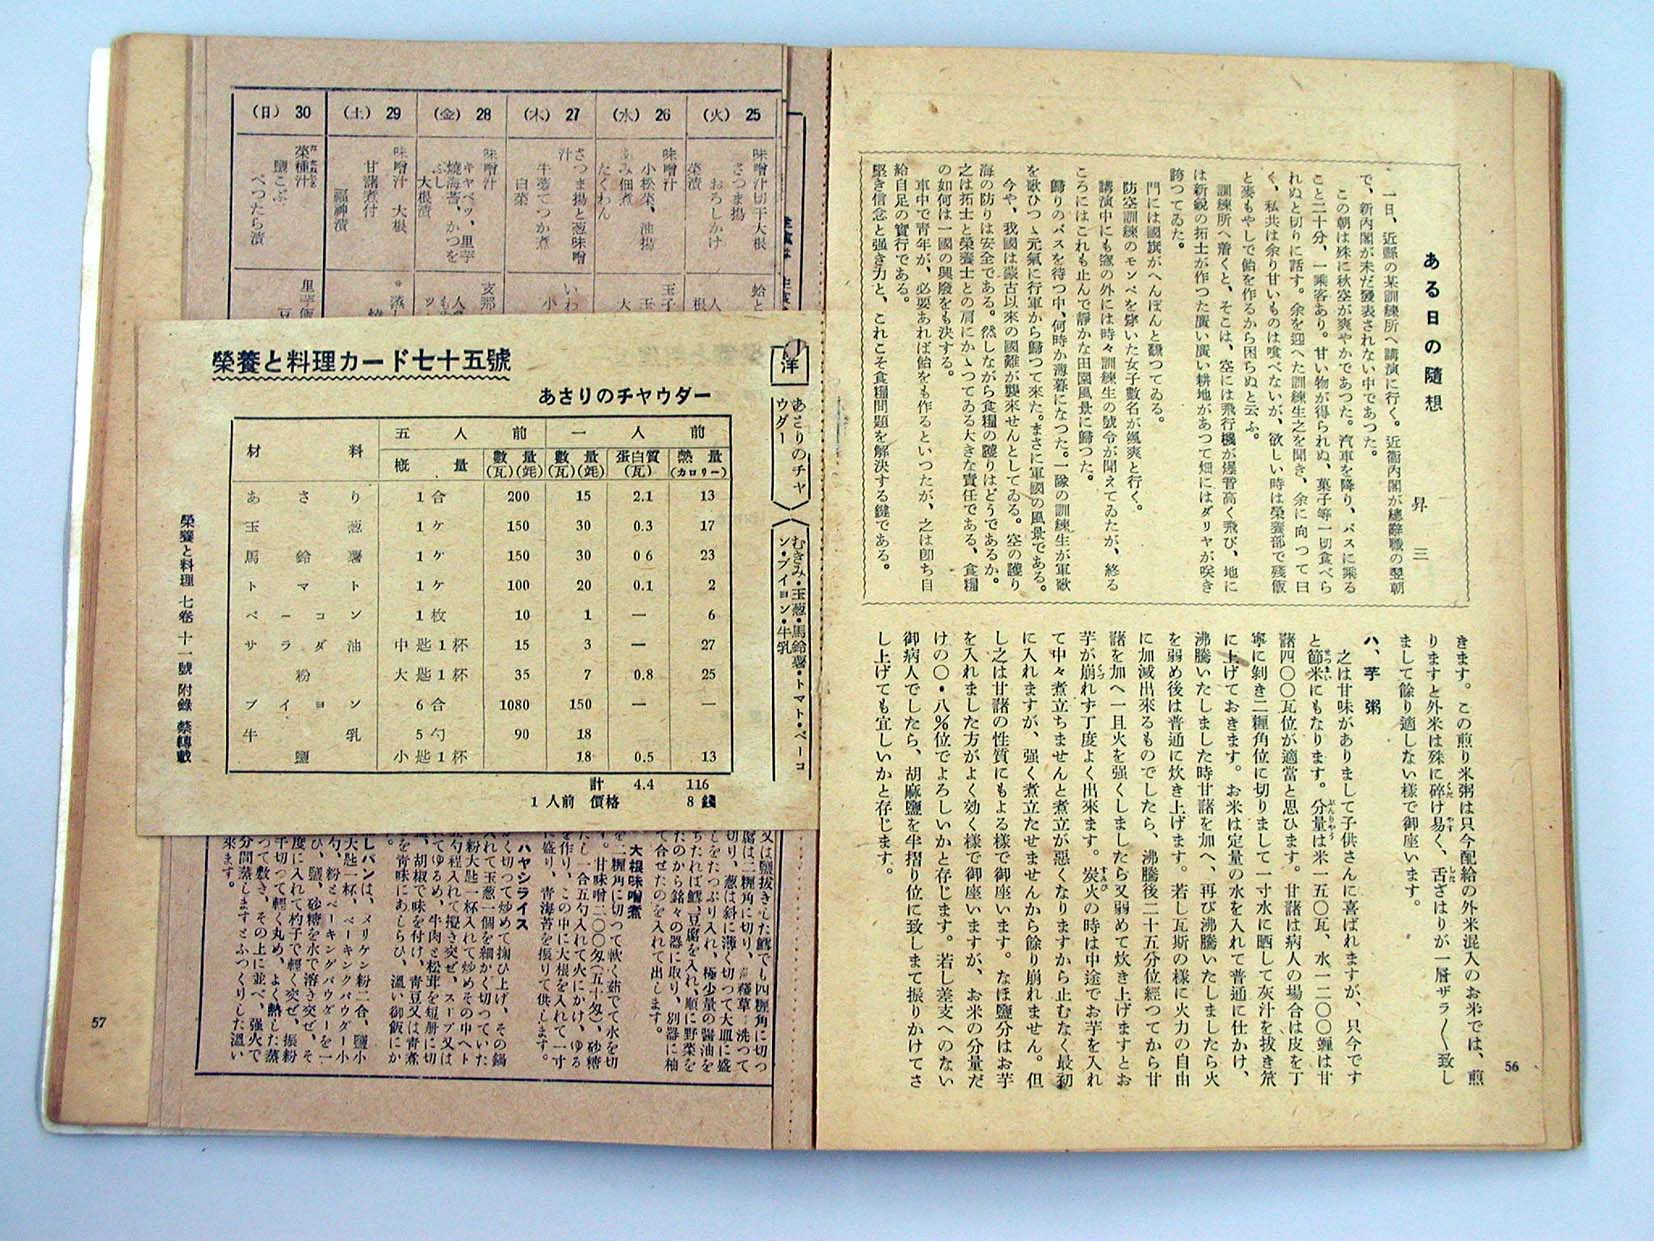 ある日の隨想
昇三
一日、近縣の某訓練所へ講演に行く。近衞內閣が總辭職の翌朝
で、新內閣が未だ發表されない中であつた。
この朝は殊に秋空が爽やかであつた。汽車を降り、バスに乘る
こと二十分、一乘客あり。甘い物が得られぬ、菓子等一切食べら
れぬと切りに話す。余を迎へた訓練生之を聞き、余に向つて曰
く、私共は余り甘いものは喰べないが、欲しい時は榮養部で殘飯
と麥もやしで飴を作るから困らぬと云ふ。
訓練所へ着くと、そこは、空には飛行機が爆音高く飛び、地に
は新銳の拓士が作つた廣い廣い耕地があつて畑にはダリヤが咲き
誇つてゐた。
門には國旗がへんぽんと飜つてゐる。
防空訓練のモンペを穿いた女子數名が颯爽と行く。
講演中にも窓の外には時々訓練生の號令が聞えてゐたが、終る
ころにはこれも止んで靜かな田園風景に歸つた。
歸りのバスを待つ中、何時か薄暮になつた。一隊の訓練生が軍歌
を歌ひつゝ元氣に行軍から歸つて來た。まさに軍國の風景である。
今や、我國は蒙古以來の國難が襲來せんとしてゐる。空の護り
海の防りは安全である。然しながら食糧の護りはどうであるか。
之は拓士と榮養士との肩にかゝつてゐる大きな責任である、食糧
の如何は一國の興廢をも決する。
車中で靑年が、必要あれば飴をも作るといつたが、之は卽ち自
給自足の實行である。
堅き信念と强き力と、これこそ食糧問題を解決する鍵である。
きます。この煎り米粥は只今配給の外米混入のお米では、煎
りますと外米は殊に碎け易く、舌ざはりが一層ザラ〱致し
まして餘り適しない樣で御座います。
ハ、芋粥
之は甘味がありまして子供さんに喜ばれますが、只今です
と節米にもなります。分量は米一五〇瓦、水一二〇〇竓は甘
藷四〇〇瓦位が適當と思ひます。甘藷は病人の場合は皮を丁
寧に剝き二糎角位に切りまして一寸水に晒して灰汁を拔き笊
に上げておきます。お米は定量の水を入れて普通に仕かけ、
沸騰いたしました時甘藷を加へ、再び沸騰いたしましたら火
を弱め後は普通に炊き上げます。若し瓦斯の樣に火力の自由
に加減出來るものでしたら、沸騰後二十五分位經つてから甘
藷を加へ一旦火を强くしましたら又弱めて炊き上げますとお
芋が崩れず丁度よく出來ます。炭火の時は中途でお芋を入れ
て中々煮立ちませんと煮立が惡くなりますから止むなく最初
に入れますが、强く煮立たせませんから餘り崩れません。但
し之は甘藷の性質にもよる樣で御座います。なほ鹽分はお芋
を入れました方がよく効く樣で御座いますが、お米の分量だ
けの〇・八％位でよろしいかと存じます。若し差支へのない
御病人でしたら、胡麻鹽を半摺り位に致しまて振りかけてさ
し上げても宜しいかと存じます。
56
25 (火)
味噌汁切干大根
さつま揚
おろしかけ
菜漬
26 (水)
味噌汁
小松菜、油揚
あみ佃煮
たくわん
27 (木)
さつま揚と葱味噌
汁
牛蒡でつか煮
白菜
28 (金)
味噌汁
キヤベツ、里芋
燒海苔、かつを
ぶし
大根漬
29 (土)
味噌汁 大根
甘藷煮付
福神漬
30 (日)
菜種汁
鹽こぶ
べつたら漬
洋
あさりのチャ
ウダー
むきみ・玉葱・馬鈴薯・トマト・ベーコ
ン・ブイヨン・牛乳
榮養と料理カード七十五號
あさりのチャウダー
材料 五人前 一人前
概量 數量(瓦)(竓) 數量(瓦)(竓) 蛋白質(瓦) 熱量(カロリー)
あさり 1合 200 15 2.1 13
玉葱 1ケ 150 30 0.3 17
馬鈴薯 1ケ 150 30 0.6 23
トマト 1ケ 100 20 0.1 2
ベーコン 1枚 10 1 — 6
サラダ油 中匙1杯 15 3 — 27
粉 大匙1杯 35 7 0.8 25
ブイヨン 6合 1080 150 — —
牛乳 5勺 90 18
鹽 小匙1杯 18 0.5 13
計 4.4 116
1人前 價格 8錢
榮養と料理 七卷 十一號 附錄 禁轉載
又は鹽拔きした鱈でも四糎角に切つ
腐は二糎角に切り、
切り、葱は斜に薄く切つて大皿に盛
しをたつぷり入れ、極少量の醬油を
ちたれば鱈、豆腐を入れ、順に野菜を
たのから銘々の器に取り、別器に柚
て合せたのを入れて出します。
大根味噌煮
を二糎角に切つて軟く茹でて水を切
。甘味噌二〇〇瓦(五十匁)、砂糖
たし一合五勺入れて火にかけ、ゆる
を作り、この中に大根を入れて一寸
に盛り、靑海苔を振りて供します。
ハヤシライス
かく切つて炒めて掬ひ上げ、その鍋
入れて玉葱一個を細かく切つていた
粉大匙一杯入れて炒めその中へト
勺程入れて攪き突ぜ、スープ又は
てゆるめ、牛肉と松茸を短册に切
、胡椒で味を付け、靑豆又は靑煮
を靑味にあしらひ、溫い御飯にか
しパンは、メリケン粉二合、鹽小
大匙一杯、ベーキングパウダー小
勺、粉とベーキングパウダーを一
ひ、鹽、砂糖を水で溶き突ぜ、そ
度に入れて杓子で輕く突ぜ、振粉
千切つて輕く丸め、よく熱した蒸
つて敷き、その上に並べ、强火で
分間蒸しますとふつくりした溫い
來ます。
57